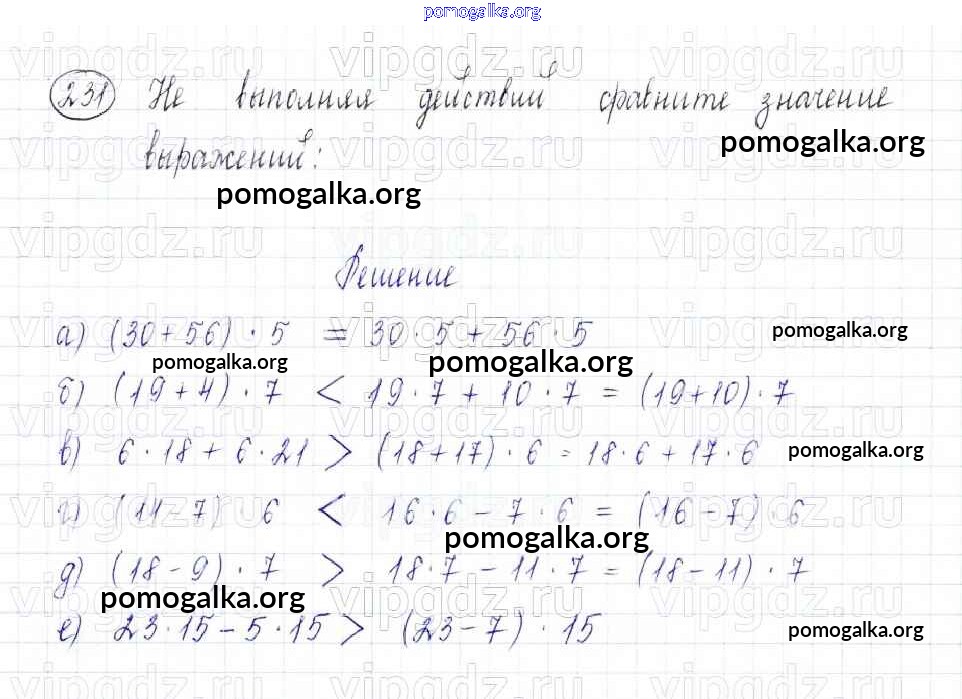 pomogalka.org
231 Не выполняя действий сравните значение
pomogalka.org
выражений:
pomogalka.org
Решение
а) (30+56) · 5 = 30 · 5 + 56 · 5 pomogalka.org
pomogalka.org pomogalka.org
б) (19+4) · 7 < 19 · 7 + 10 · 7 = (19+10) · 7
в) 6 · 18 + 6 · 21 > (18+17) · 6 = 18 · 6 + 17 · 6 pomogalka.org
г) (14-7) · 6 < 16 · 6 - 7 · 6 = (16-7) · 6
pomogalka.org
д) (18-9) · 7 > 18 · 7 - 11 · 7 = (18-11) · 7
pomogalka.org
е) 23 · 15 - 5 · 15 > (23-7) · 15 pomogalka.org
vipgdz.ru vipgdz.ru vipgdz.ru